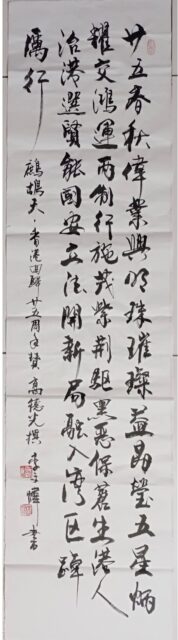 廿五春秋偉業興明珠璀璨益晶瑩五星炳
耀交鴻運两制行施茂紫荊驅黑惡保蒼生港人
治港選賢能國安立法開新局融入灣区踔
厲行
鷓鴣天·香港回歸廿五周年賀 高德光撰 李文 書